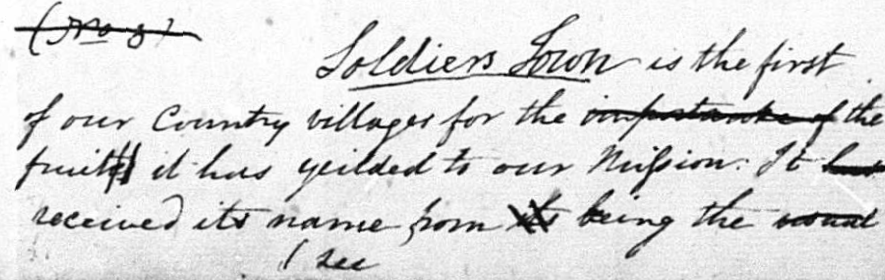 (No 3)
Soldiers Town is the first
of our Country villages for the importance of the
fruit it has yeilded to our Mission. It has
received its name from its being the usual
( see